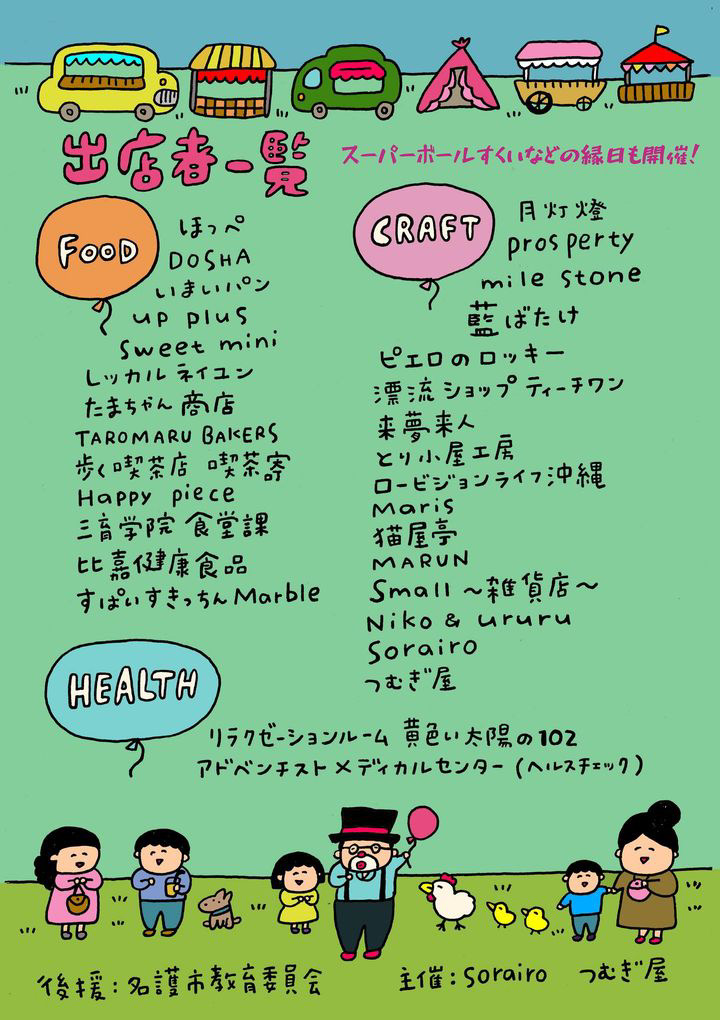 出店者一覧
スーパーボールすくいなどの縁日も開催!
FOOD
ほっぺ
DOSHA
いまいパン
up plus
sweet mini
レッカルネイユン
たまちゃん商店
TAROMARU BAKERS
歩く喫茶店 喫茶寄
Happy piece
三育学院 食堂課
比嘉健康食品
すぱいすきっちんMarble
CRAFT
月灯燈
prosperty
mile stone
藍ばたけ
ピエロのロッキー
漂流ショップ ティーチワン
来夢来人
とり小屋工房
ロービジョンライフ沖縄
Maris
猫屋亭
MARUN
Small ～雑貨店～
Niko & ururu
Sorairo
つむぎ屋
HEALTH
リラクゼーションルーム 黄色い太陽の102
アドベンチストメディカルセンター (ヘルスチェック)
後援:名護市教育委員会
主催:sorairo つむぎ屋